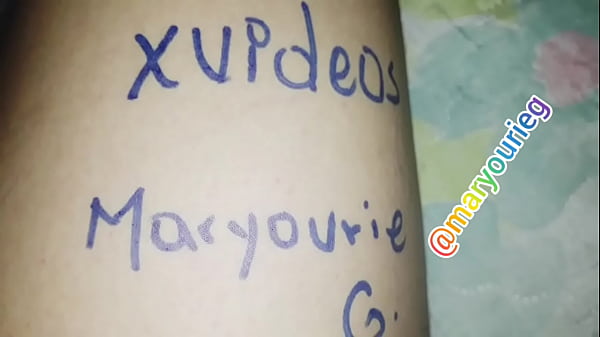 XVIdeos
Maryourie
G.
@maryourieg